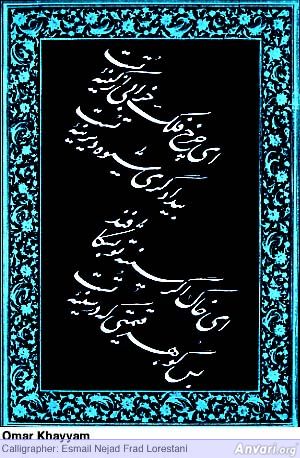 ای چرخ فلک خرابی از کینهٔ تست
بیدادگری شیوهٔ دیرینهٔ تست
ای خاک اگر سینهٔ تو بشکافند
بس گوهر قیمتی که در سینهٔ تست
Omar Khayyam
Calligrapher: Esmail Nejad Frad Lorestani
Anvari.org